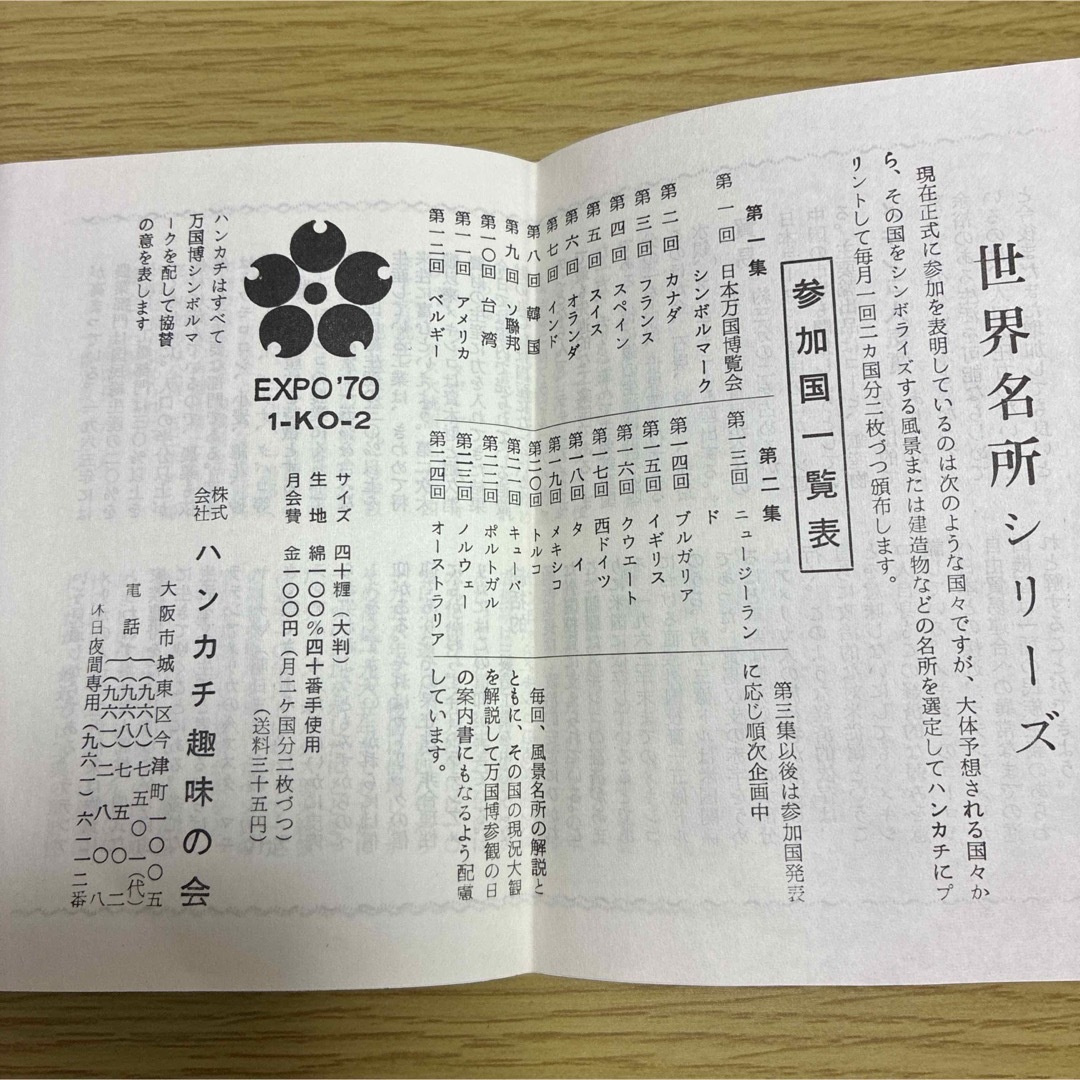 世界名所シリーズ
現在正式に参加を表明しているのは次のような国々ですが、大体予想される国々か
ら、その国をシンボライズする風景または建造物などの名所を選定してハンカチにプ
リントして毎月一回二カ国分二枚づつ頒布します。
参加国一覧表
第一集
第一回 日本万国博覧会
シンボルマーク
第二回 カナダ
第三回 フランス
第四回 スペイン
第五回 スイス
第六回 オランダ
第七回 インド
第八回 韓国
第九回 ソ聯邦
第一〇回 台湾
第一一回 アメリカ
第一二回 ベルギー
第二集
第一三回 ニュージーラン
ド
第一四回 ブルガリア
第一五回 イギリス
第一六回 クウエート
第一七回 西ドイツ
第一八回 タイ
第一九回 メキシコ
第二〇回 トルコ
第二一回 キューバ
第二二回 ポルトガル
第二三回 ノルウェー
第二四回 オーストラリア
第三集以後は参加国発表
に応じ順次企画中
毎回、風景名所の解説と
ともに、その国の現況大観
を解説して万国博参観の日
の案内書にもなるよう配慮
しています。
EXPO'70
1-KO-2
ハンカチはすべて
万国博シンボルマ
ークを配して協賛
の意を表します
サイズ 四十糎（大判）
生地 綿一〇〇％四十番手使用
月会費 金一〇〇円（月二ケ国分二枚づつ）
（送料三十五円）
株式会社 ハンカチ趣味の会
大阪市城東区今津町一〇〇五
電話（九六八）七五〇一（代）
（九六八）七五〇二
（九六一）二八〇八
休日夜間専用（九六一）六二二二番